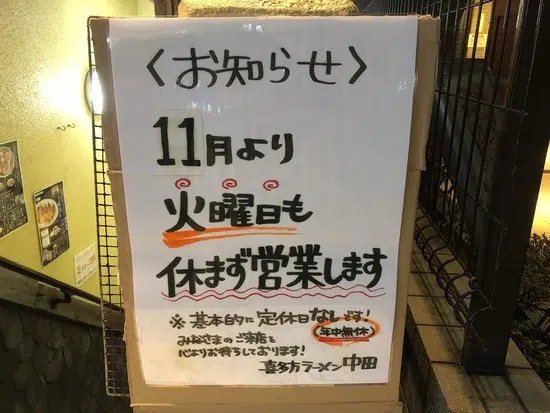 〈お知らせ〉
11月より
火曜日も
休まず営業します
※基本的に定休日なしです!
(年中無休)
みなさまのご来店を
心よりお待ちしております!
喜多方ラーメン 中田